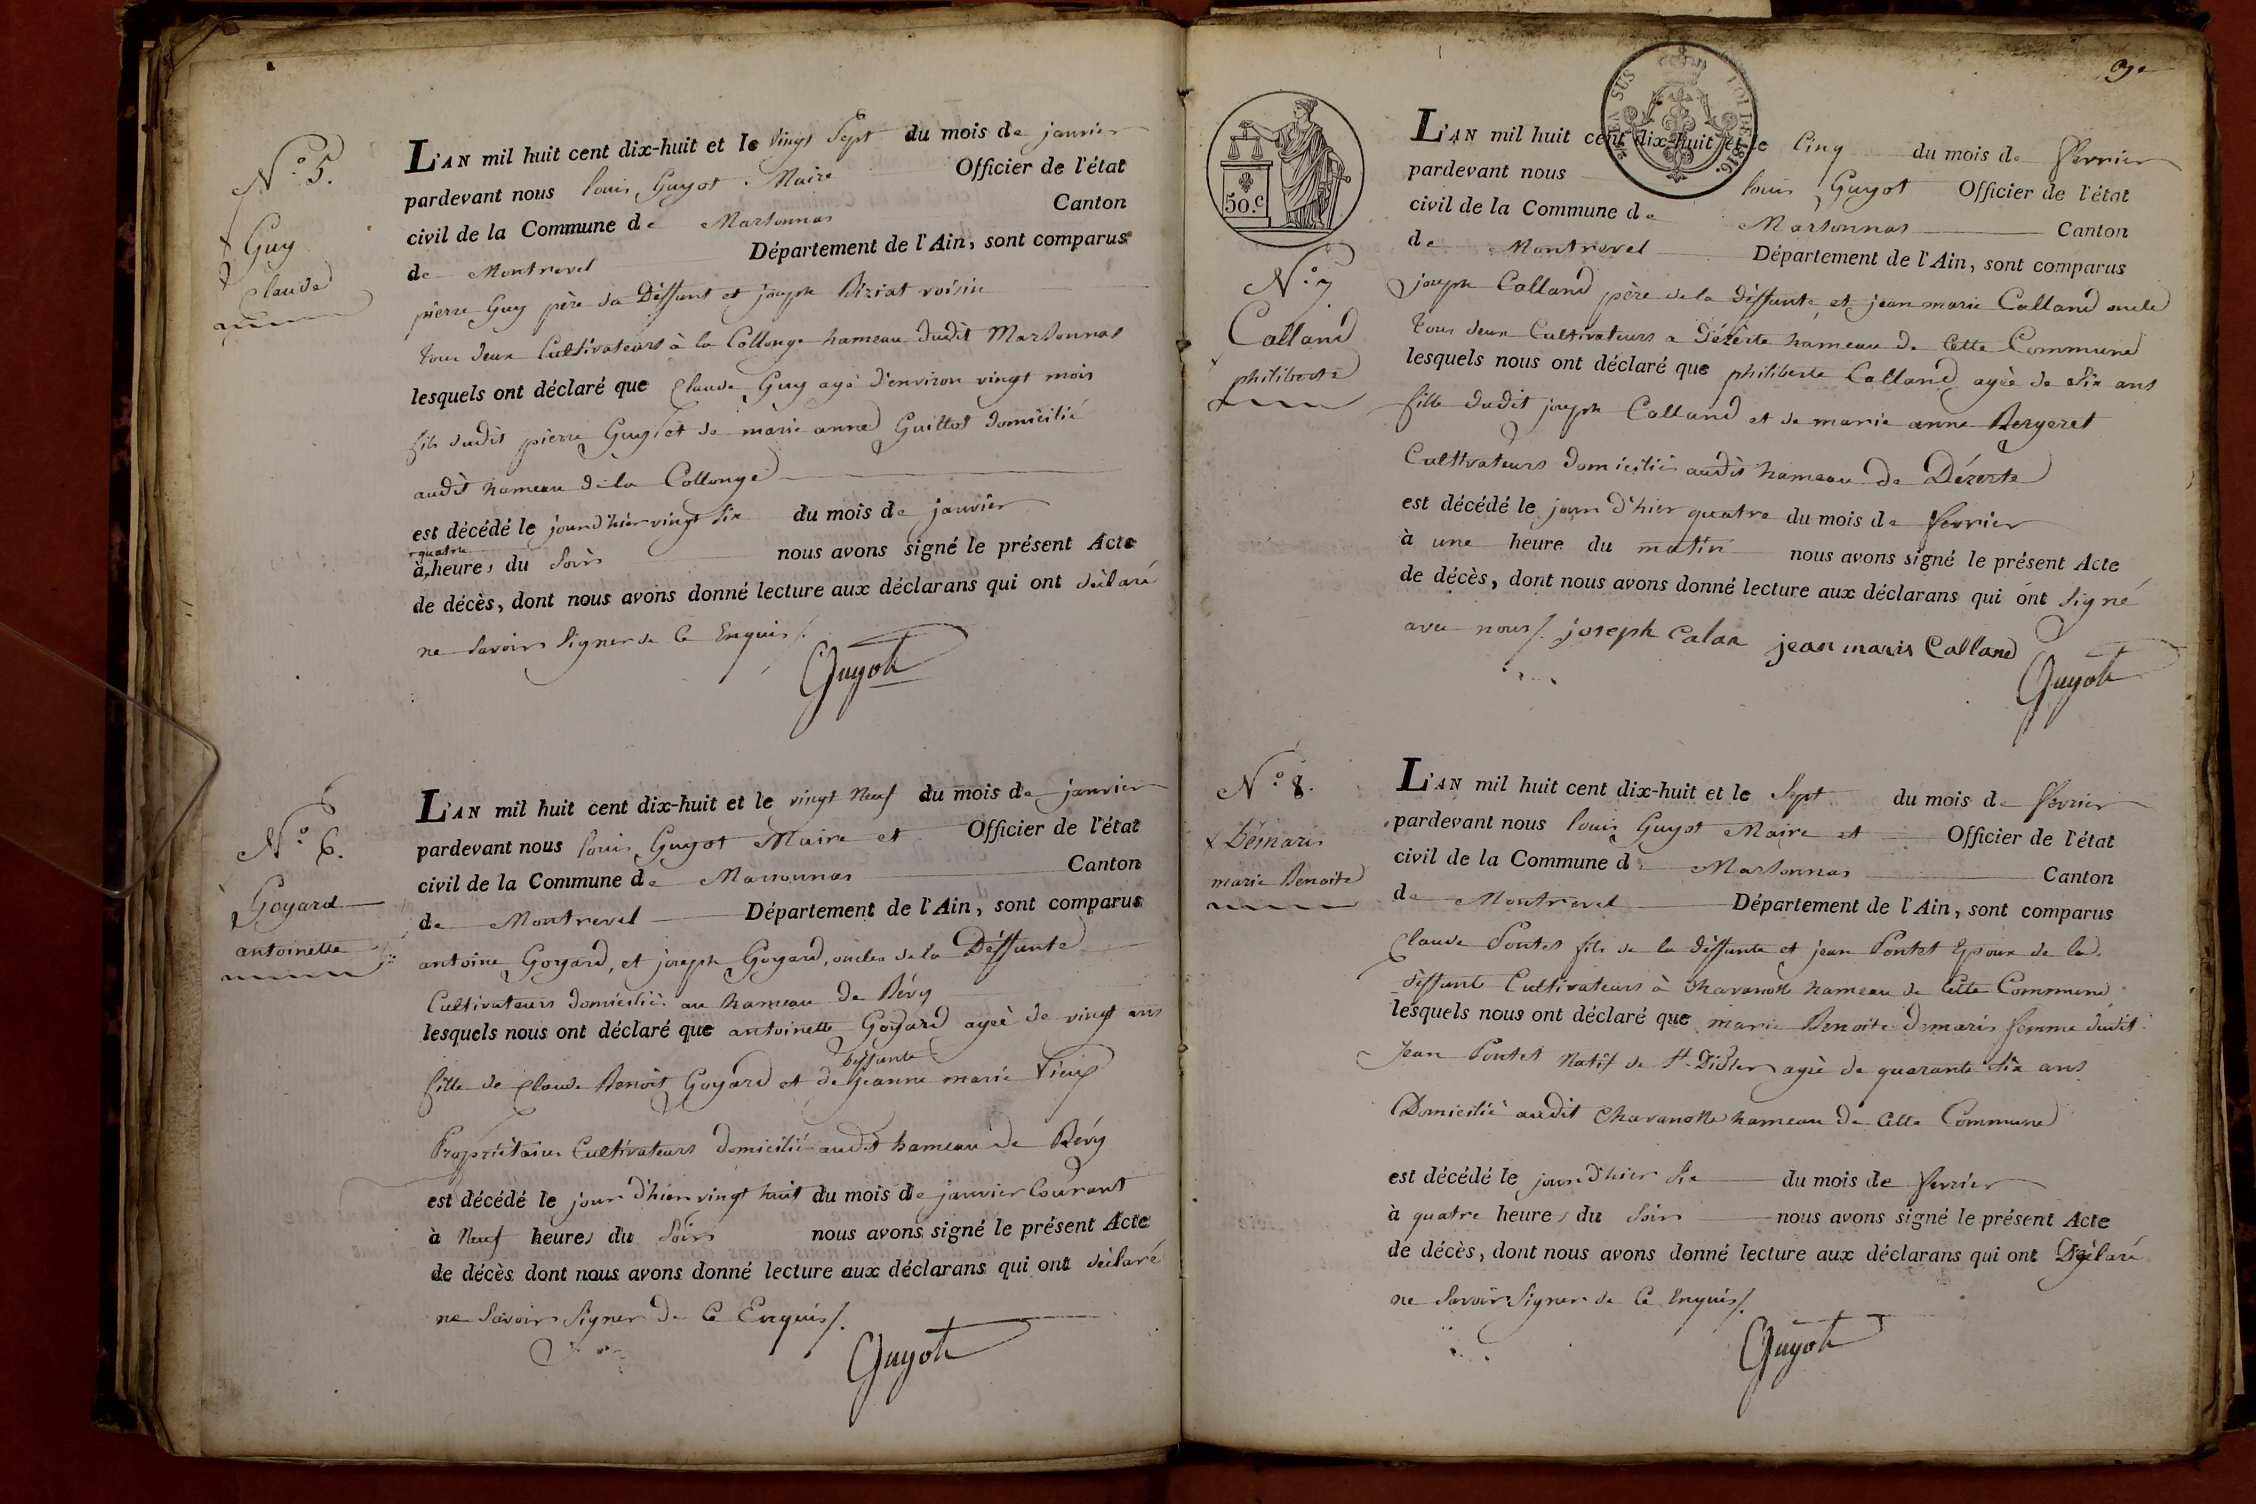 N.o 5.
Guy
Claude
L'AN mil huit cent dix-huit et le vingt Sept du mois de janvier
pardevant nous Louis Guyot Maire Officier de l'état
civil de la Commune de Marsonnas Canton
de Montrevel Département de l'Ain, sont comparus
pierre Guy père du Déffunt et joseph Biziat voisin
tous deux Cultivateurs à la Collonge hameau dudit Marsonnas
lesquels ont déclaré que Claude Guy agé d'environ vingt mois
fils dudit pierre Guy et de marie anne Guillot domicilié
audit hameau de la Collonge
est décédé le jour d'hier vingt six du mois de janvier
quatre
à heures du Soir nous avons signé le présent Acte
de décès, dont nous avons donné lecture aux déclarans qui ont déclaré
ne Savoir Signer de Ce Enquis /.
Guyot
N.o 6.
Goyard
antoinette
L'AN mil huit cent dix-huit et le vingt Neuf du mois de janvier
pardevant nous Louis Guyot Maire et Officier de l'état
civil de la Commune de Marsonnas Canton
de Montrevel Département de l'Ain, sont comparus
antoine Goyard, et joseph Goyard, oncles de la Déffunte
Cultivateurs domicilié au hameau de Bévy
lesquels nous ont déclaré que antoinette Goyard ageé de vingt ans
deffunte
fille de Claude Benoit Goyard et de jeanne marie Vieux
Propriétaires Cultivateurs domicilié audit hameau de Bévy
est décédé le jour d'hier vingt huit du mois de janvier Courant
à Neuf heures du Soir nous avons signé le présent Acte
de décès dont nous avons donné lecture aux déclarans qui ont déclaré
ne Savoir Signer de Ce Enquis /.
Guyot
9e
50.c
EN SUS
LOI DE 1816.
N.o 7
Calland
philiberte
L'AN mil huit cent dix-huit et le Cinq du mois de fevrier
pardevant nous Louis Guyot Officier de l'état
civil de la Commune de Marsonnas Canton
de Montrevel Département de l'Ain, sont comparus
joseph Calland père de la déffunte, et jean marie Calland oncle
tous deux Cultivateurs a Dézerte hameau de Cette Commune
lesquels nous ont déclaré que philiberte Calland ageé de Six ans
fille dudit joseph Calland et de marie anne Bergeret
Cultivateurs domiciliés audit hameau de Dézerte
est décédé le jour d'hier quatre du mois de fevrier
à une heure du matin nous avons signé le présent Acte
de décès, dont nous avons donné lecture aux déclarans qui ont signé
avec nous /. joseph calan jean marie Calland
Guyot
N.o 8.
Démaris
marie Benoite
L'AN mil huit cent dix-huit et le Sept du mois de fevrier
pardevant nous Louis Guyot Maire et Officier de l'état
civil de la Commune de Marsonnas Canton
de Montrevel Département de l'Ain, sont comparus
Claude Pontet fils de la déffunte et jean Pontet Epoux de la
déffunte Cultivateurs à Chavanotte hameau de Cette Commune
lesquels nous ont déclaré que marie Benoite demaris femme dudit
Jean Pontet Natif de St. Didier ageé de quarante Six ans
Domicilié audit Chavanotte hameau de Cette Commune
est décédé le jour d'hier Six du mois de fevrier
à quatre heures du Soir nous avons signé le présent Acte
de décès, dont nous avons donné lecture aux déclarans qui ont Déclaré
ne Savoir Signer de Ce Enquis /.
Guyot